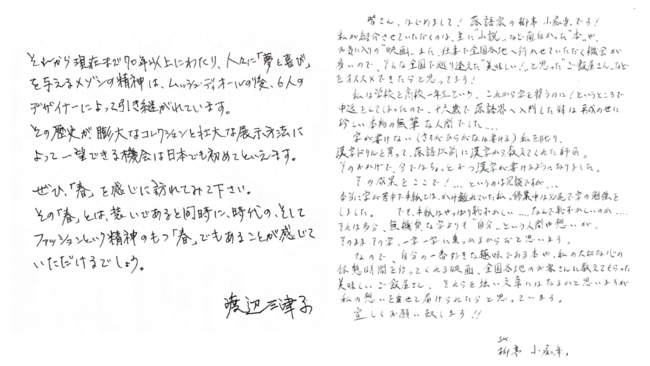 それから現在まで70年以上にわたり、人々に「夢と喜び」
を与えるメゾンの精神は、ムッシュ・ディオールの後、6人の
デザイナーによって引き継がれています。
その歴史が膨大なコレクションと壮大な展示方法に
よって一望できる機会は日本でも初めてといえます。
ぜひ、「春」を感じに訪れてみて下さい。
その「春」とは、装いであると同時に、時代の、そして
ファッションという精神のもつ「春」でもあることが感じて
いただけるでしょう。
渡辺三津子
皆さん、はじめまして！落語家の柳亭小痴楽です！
私が紹介させていただくのは、主に"小説"など面白かった"本"や、
お気に入りの"映画"。また、仕事で全国各地へ行かせていただく機会が
多いので、そんな全国で巡り逢えた"美味しい！"と思った"ご飯屋さん"などを
オススメできたらと思ってます！
私は学校を高校一年生という、これから字を習うのに！というところで
中退としてしまったので、十六歳で落語界へ入門した時は平成の世に
珍しい本物の無筆な人間でした…。
字が書けない（さすがにひらがなは書ける）私を叱り、
漢字ドリルを買って、落語以前に漢字から教えてくれた師匠。
そのおかげで、今ではちょっとずつ漢字が書けるようになりました。
その成果をここで！…というのは冗談ですが…
本当に字が苦手で手紙とはかけ離れていた私。修業中は必死で字の勉強を
しました。 でも、手紙はやっぱり恥ずかしい…。なんで恥ずかしいのか…。
それは多分、無機質な字よりも"自分"という人間や想いが、
そのままその字、一字一字に乗っかるからなと思います。
なので、自分の一番好きな趣味である本や、私の大切な心の
休憩時間を作ってくれる映画、全国各地のお客さんに教えてもらった
美味しいご飯屋さん、それらを拙い文章にはなるかと思いますが
私の想いを乗せて届けられたらと思っています。
宜しくお願い致します！！
柳亭 小痴楽